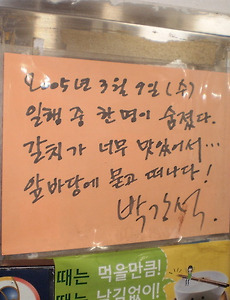 2005년 3월 9일 (수)
일행 중 한 명이 숨졌다.
갈치가 너무 맛있어서...
앞바당에 묻고 떠나다!
박간석.
때는 먹을만큼!
때는 남김없이!